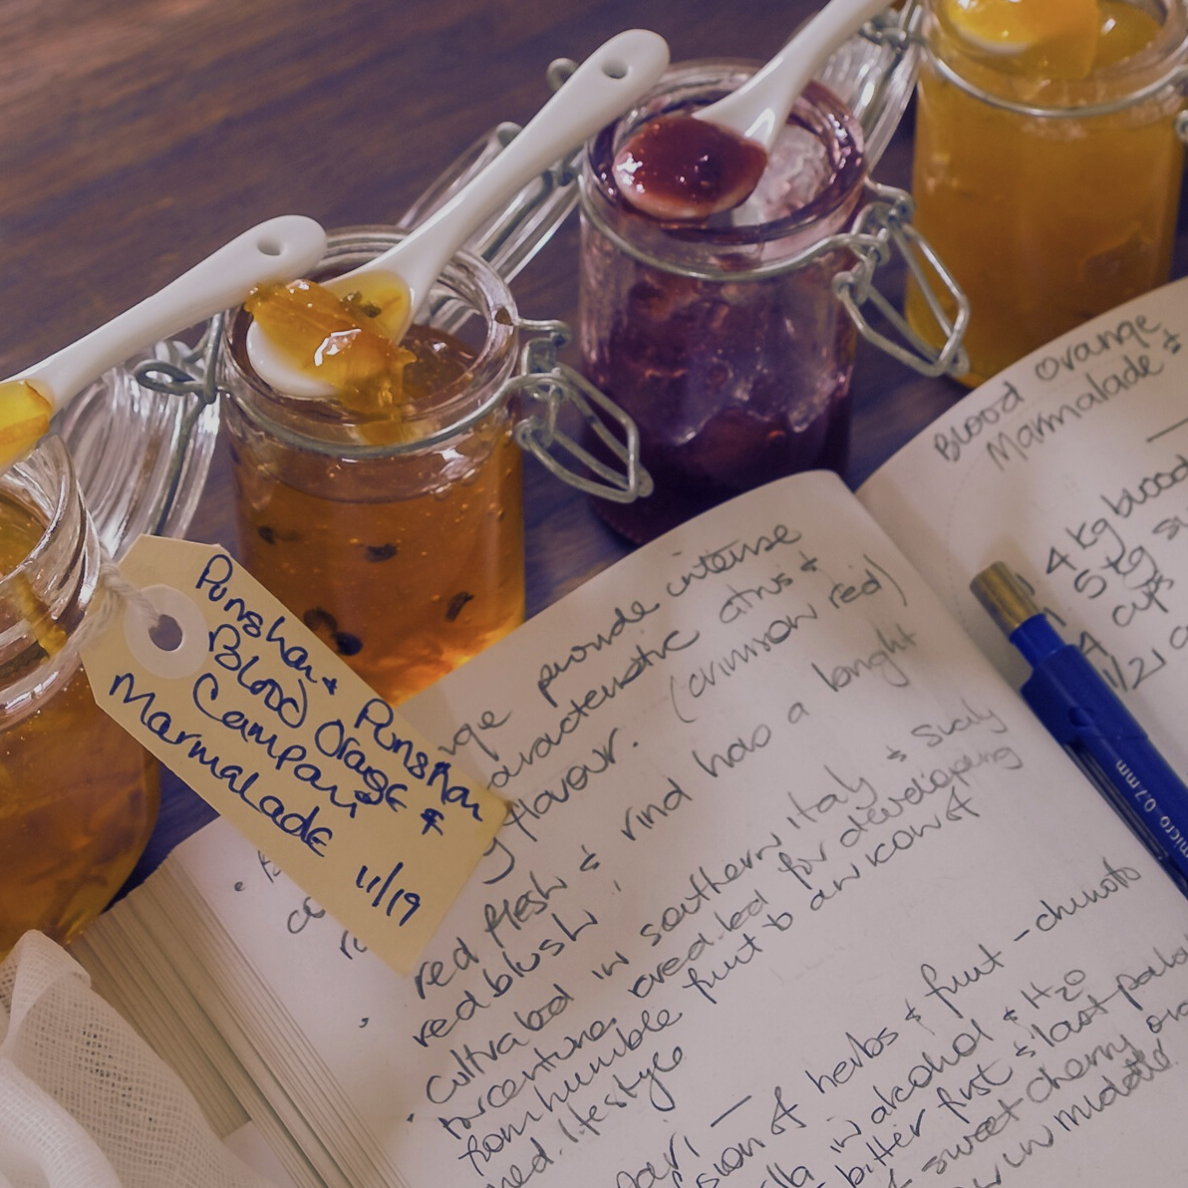 Punshon & Punshon
Blood Orange &
Campari
Marmalade
11/19
provide intense
characteristic citrus &
flavour. (crimson red)
red flesh & rind has a bright
red blush
cultivated in southern Italy & Sicily
for developing
from humble fruit to an icon of
med. lifestyle
of herbs & fruit - chinoto
in alcohol & H2O
bitter first & last
sweet cherry
in middle
Blood Orange
Marmalade &
4 kg blood
5 kg
4 cups
1/2
micro 0.7mm